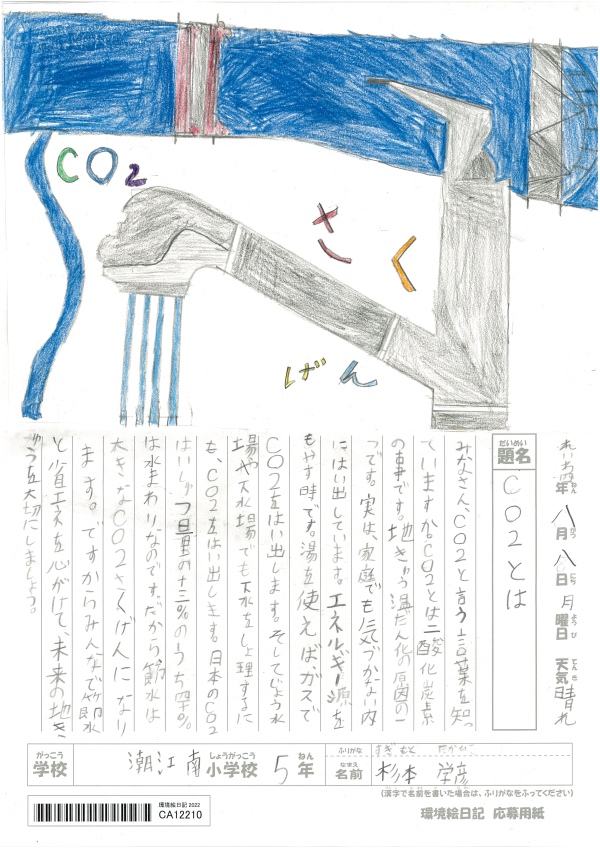 CO2
さく
げん
れいわ4年八月八日月曜日 天気晴れ
題名
CO2とは
みなさん、CO2と言う言葉を知っ
ていますか。CO2とは二酸化炭素
の事です。地きゅう温だん化の原因の一
つです。実は、家庭でも気づかない内
にはい出しています。エネルギー源を
もやす時です。湯を使えば、ガスで
CO2をはい出します。そしてじょう水
場や下水場でも下水をしょ理するに
も、CO2をはい出します。日本のCO2
はいしゅつ量の十三%のうち四十%
は水まわりなのです。だから節水は
大きなCO2さくげんになり
ます。ですからみんなで節水
と省エネを心がけて、未来の地き
ゅうを大切にしましょう。
がっこう
学校
潮江南小学校5年
ふりがな すぎもと
名前 杉本 学彦
(漢字で名前を書いた場合は、ふりがなをふってください)
環境絵日記 2022
CA12210
環境絵日記 応募用紙